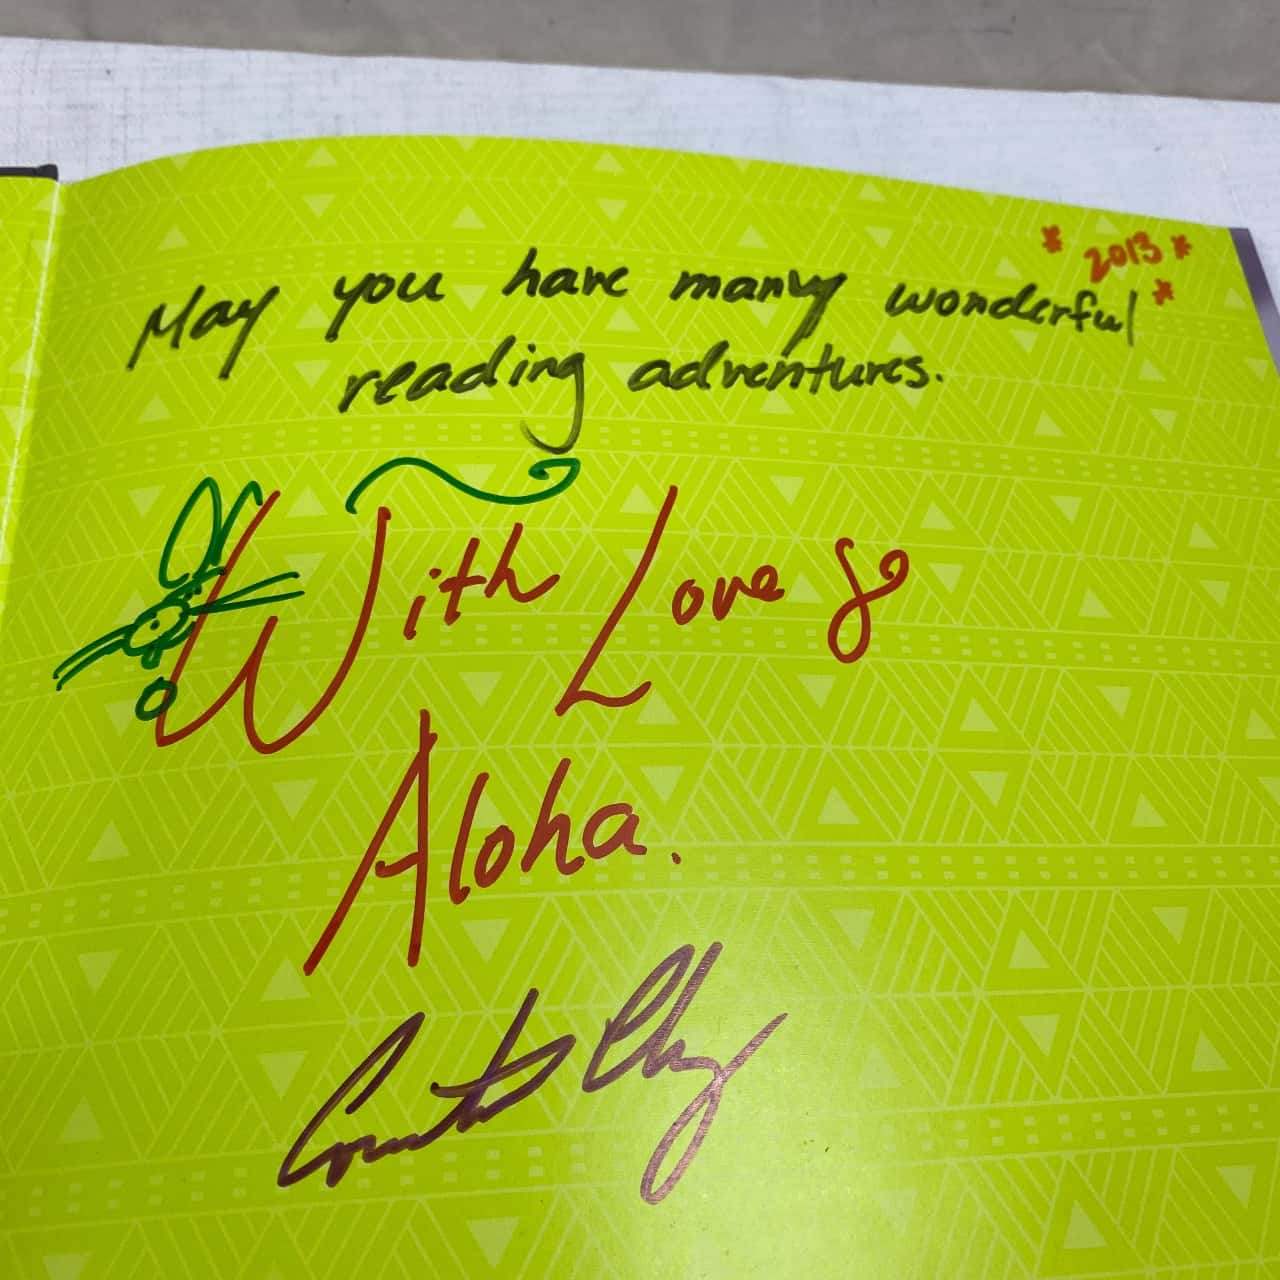 * 2013 * *
May you have many wonderful
reading adventures.
With Love &
Aloha.